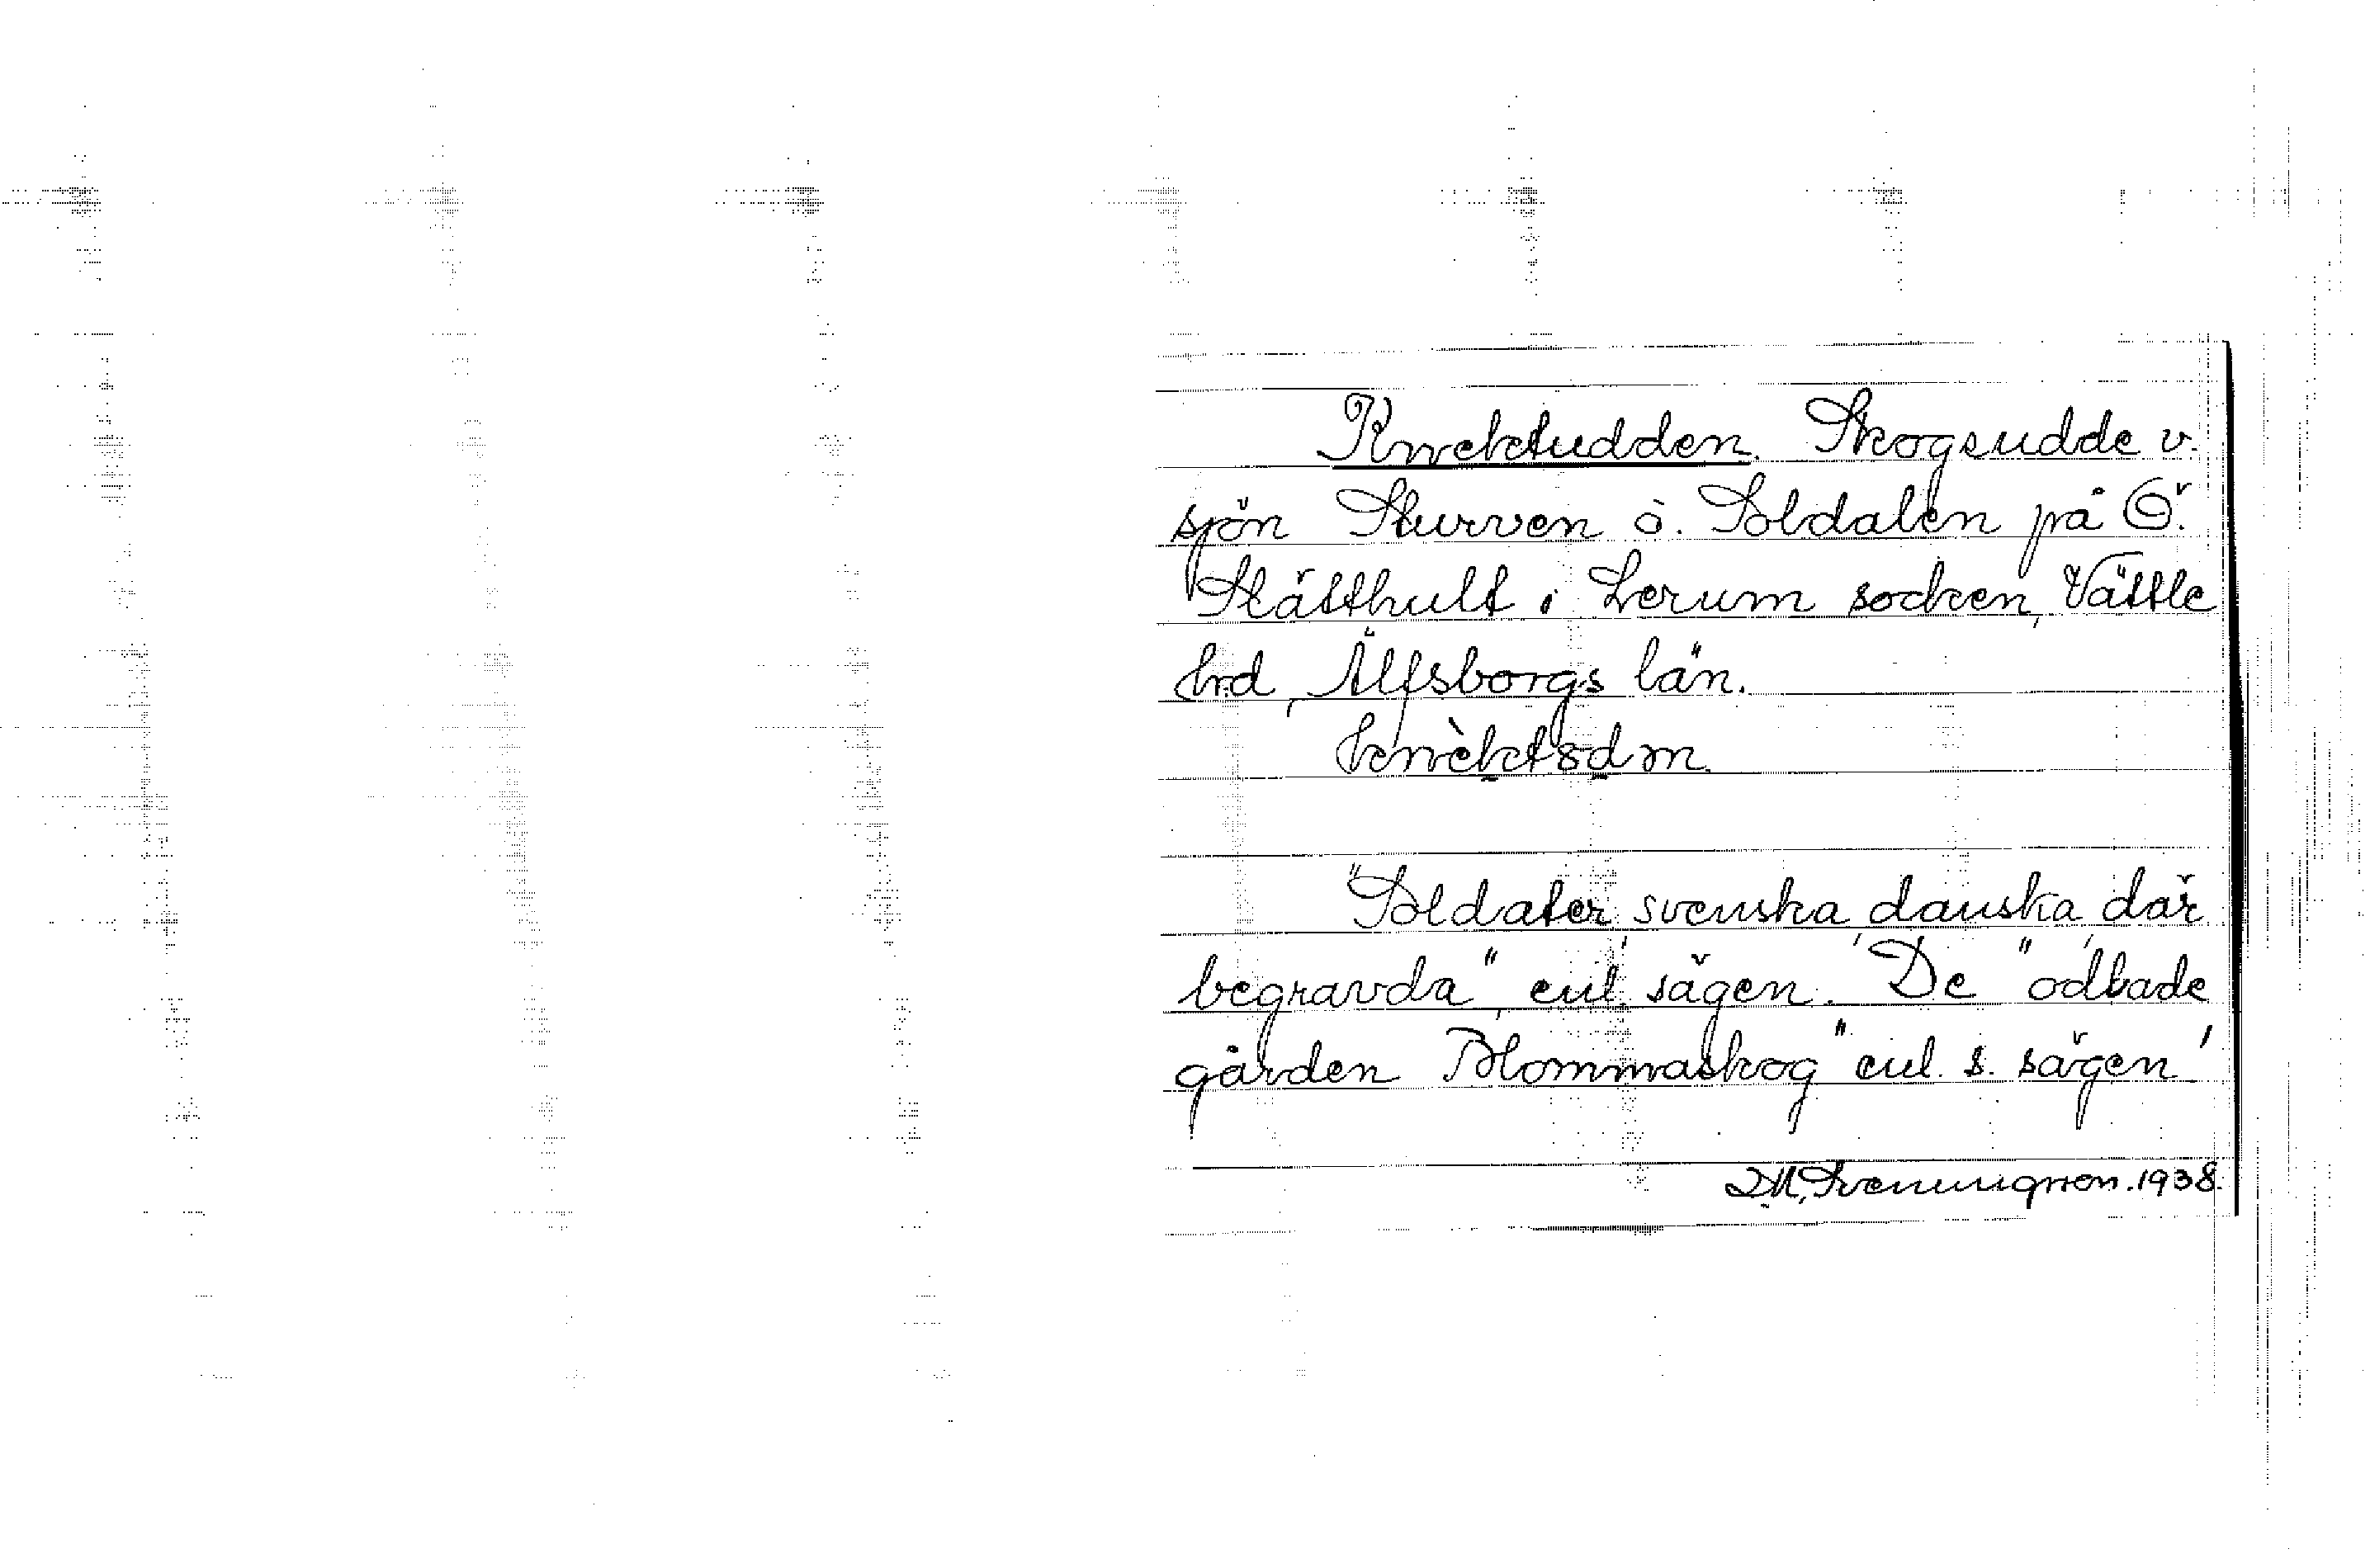 Knektudden. Skogsudde v.
sjön Sturven ö. Soldalen på Ö.
Stätthult i Lerum socken, Vättle
hrd, Älfsborgs län.
knèktsdn.
"Soldater, svenska, danska, där
begravda", enl. sägen. De "ödbade
gården Blommaskog" enl. s. sägen
D.M. Sveningsson. 1938.